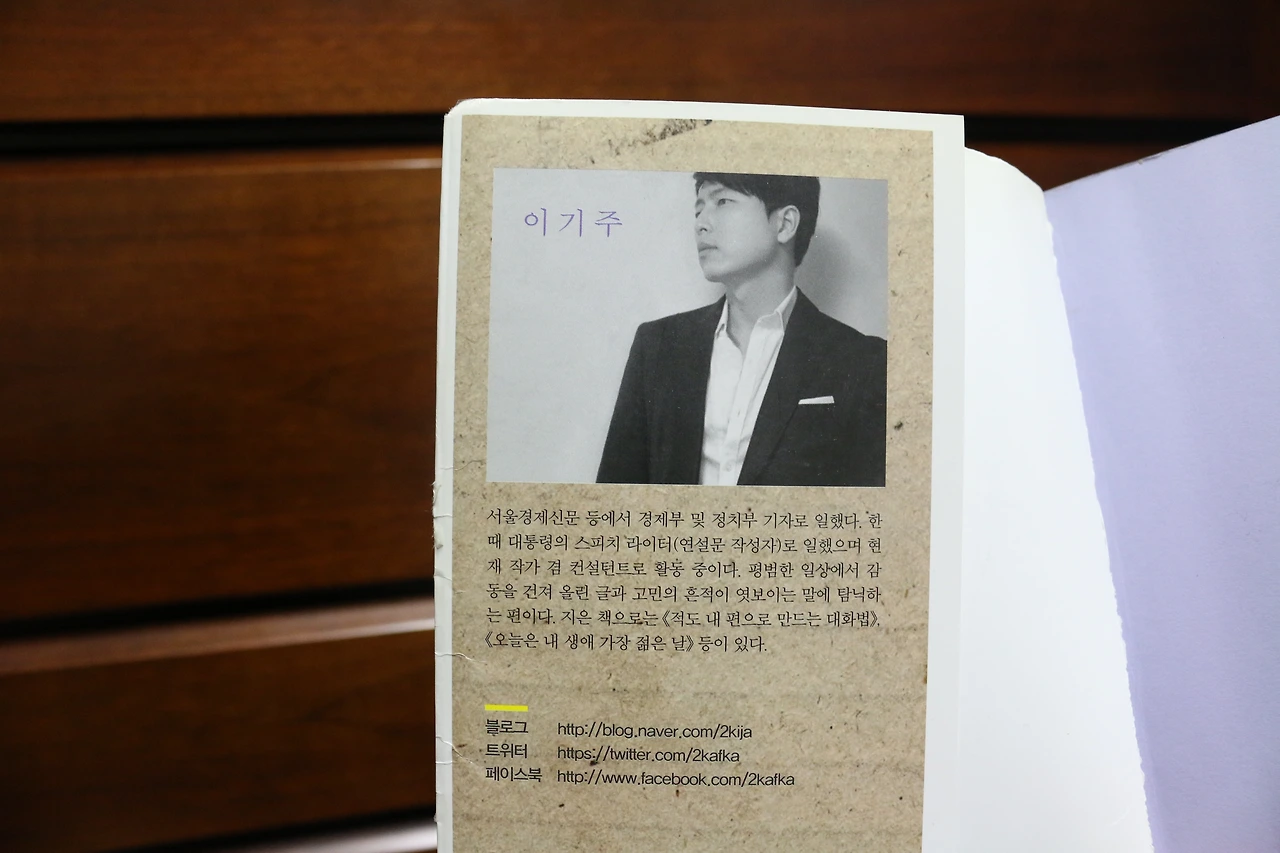 이기주
서울경제신문 등에서 경제부 및 정치부 기자로 일했다. 한
때 대통령의 스피치 라이터(연설문 작성자)로 일했으며 현
재 작가 겸 컨설턴트로 활동 중이다. 평범한 일상에서 감
동을 건져 올린 글과 고민의 흔적이 엿보이는 말에 탐닉하
는 편이다. 지은 책으로는 《적도 내 편으로 만드는 대화법》,
《오늘은 내 생애 가장 젊은 날》 등이 있다.
블로그 http://blog.naver.com/2kija
트위터 https://twitter.com/2kafka
페이스북 http://www.facebook.com/2kafka